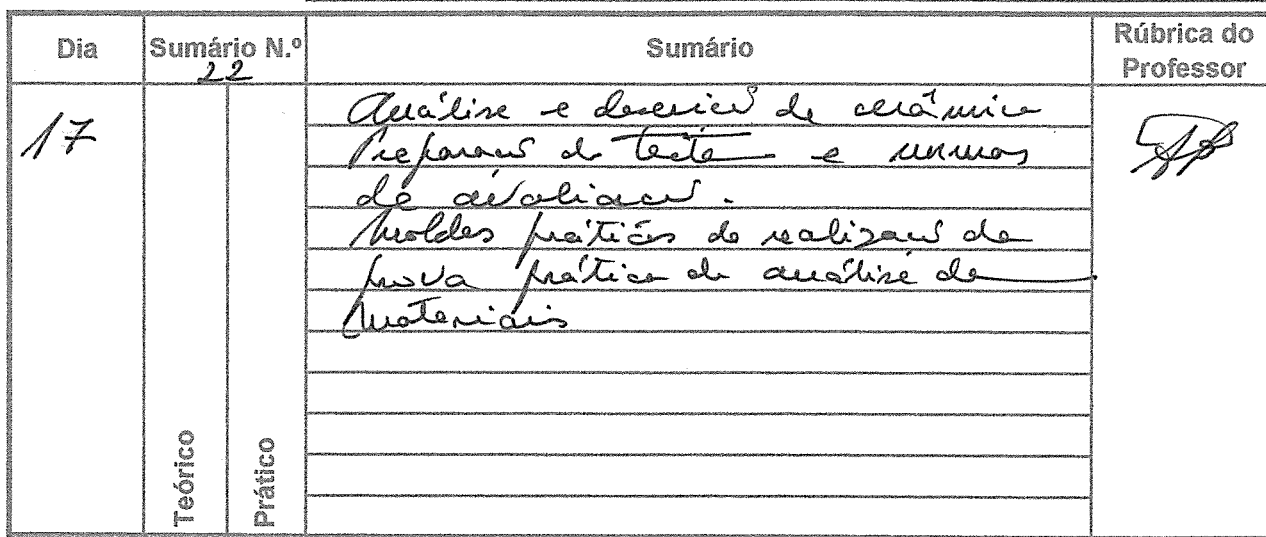 Dia Sumário N.º Sumário Rúbrica do Professor
22
17
Análise e descrição de cerâmica
Preparação do teste e normas
de avaliação.
Moldes práticos de realização da
prova prática de análise de
materiais
Teórico
Prático